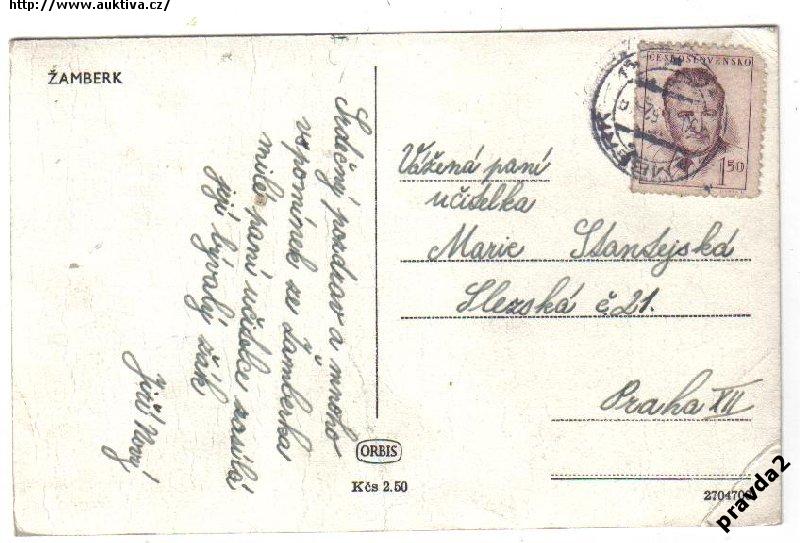 http://www.auktiva.cz/
ŽAMBERK
ČESKOSLOVENSKO
1.50
Srdečný pozdrav a mnoho
vzpomínek ze Žamberka
milé paní učitelce zasílá
její bývalý žák
Jiří Nový
Vážená paní
učitelka
Marie Stantejská
Slezská č. 21.
Praha XII
ORBIS
Kčs 2.50
270470
pravda2